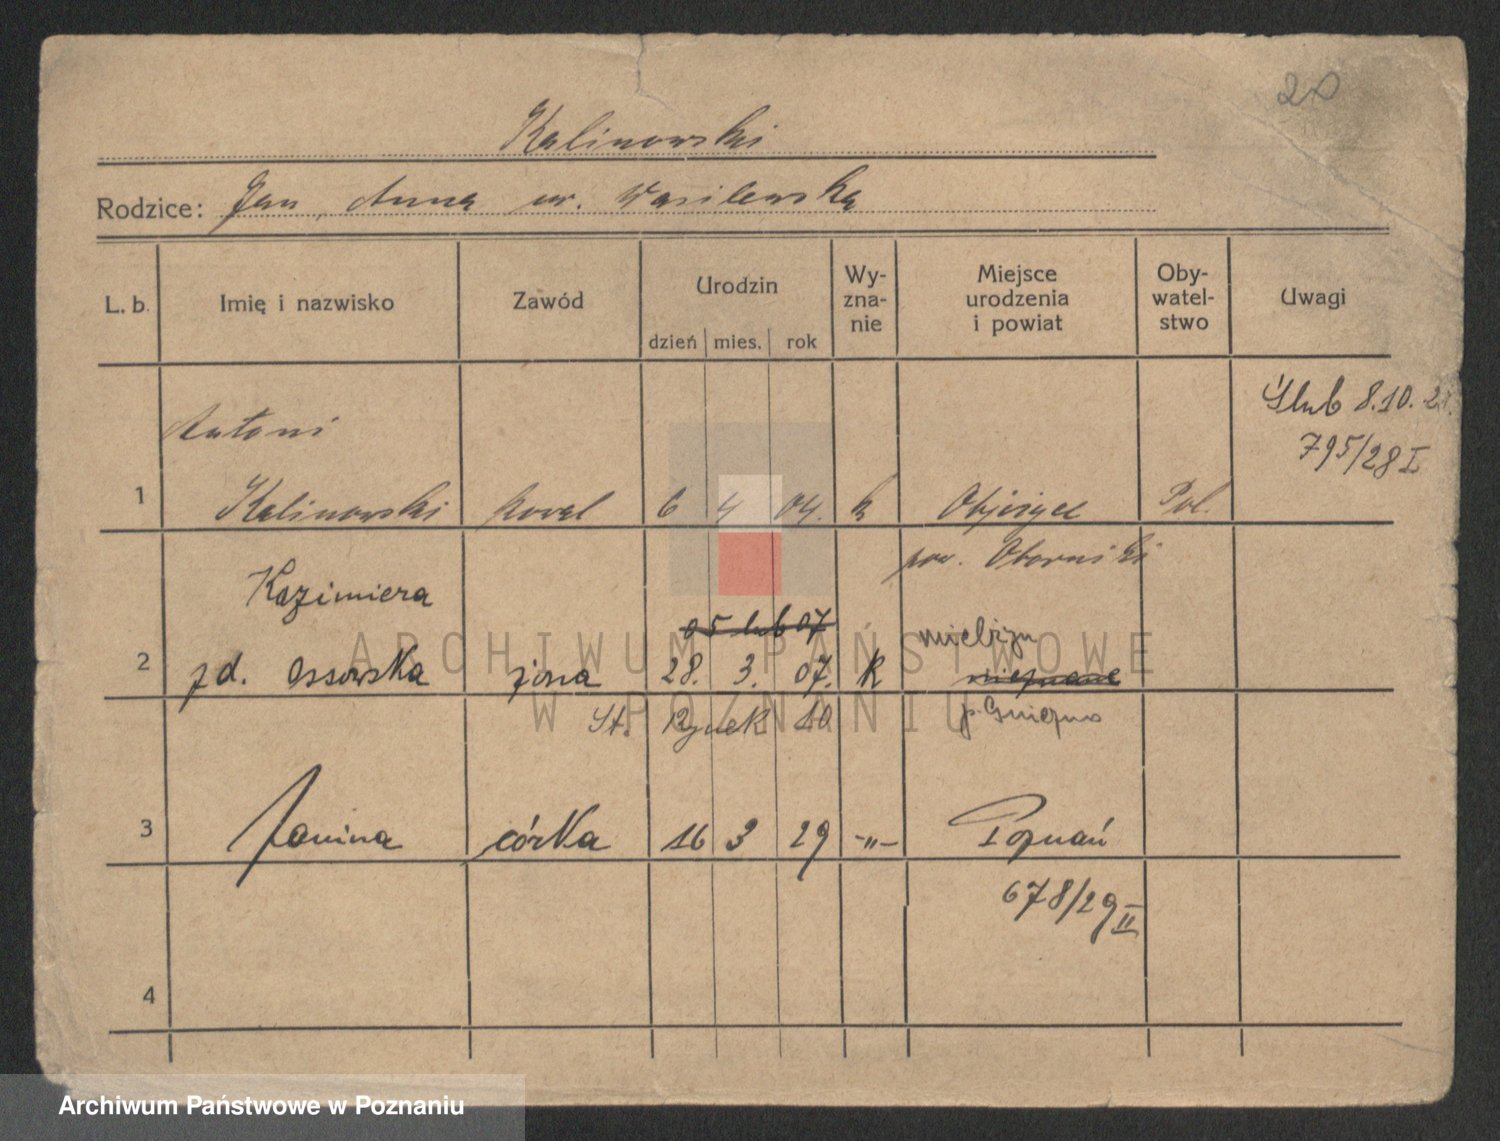 20
Kalinowski
Rodzice: Jan, Anna ur. Wasilewska
L. b. Imię i nazwisko Zawód Urodzin dzień mies. rok Wy-zna-nie Miejsce urodzenia i powiat Oby-watel-stwo Uwagi
Ślub 8.10. 28.
795/28 I
Antoni
1 Kalinowski kowal 6 4 04. k Objezyce Pol.
pow. Oborniki
Kazimiera
05 lub 07
mielżyn
2 zd. Ossowska żona 28. 3. 07. k nieznane
St. Rynek 10 p. Gniezno
3 Janina córka 16 3 29 -"- Poznań
678/29 II
4
ARCHIWUM PAŃSTWOWE
W POZNANIU
Archiwum Państwowe w Poznaniu